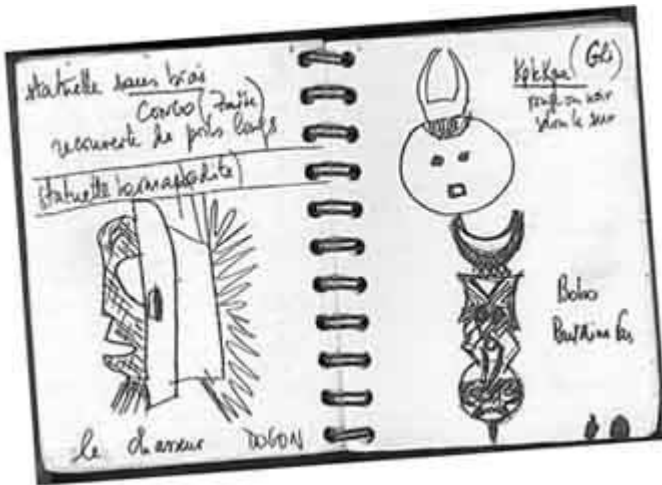 statuette sans bras
Congo (Zaïre)
recouverte de poils longs
statuette hermaphrodite
le chasseur DOGON
Kple Kple (Gli)
rouge ou noir
selon le sexe
Bobo
Burkina Faso